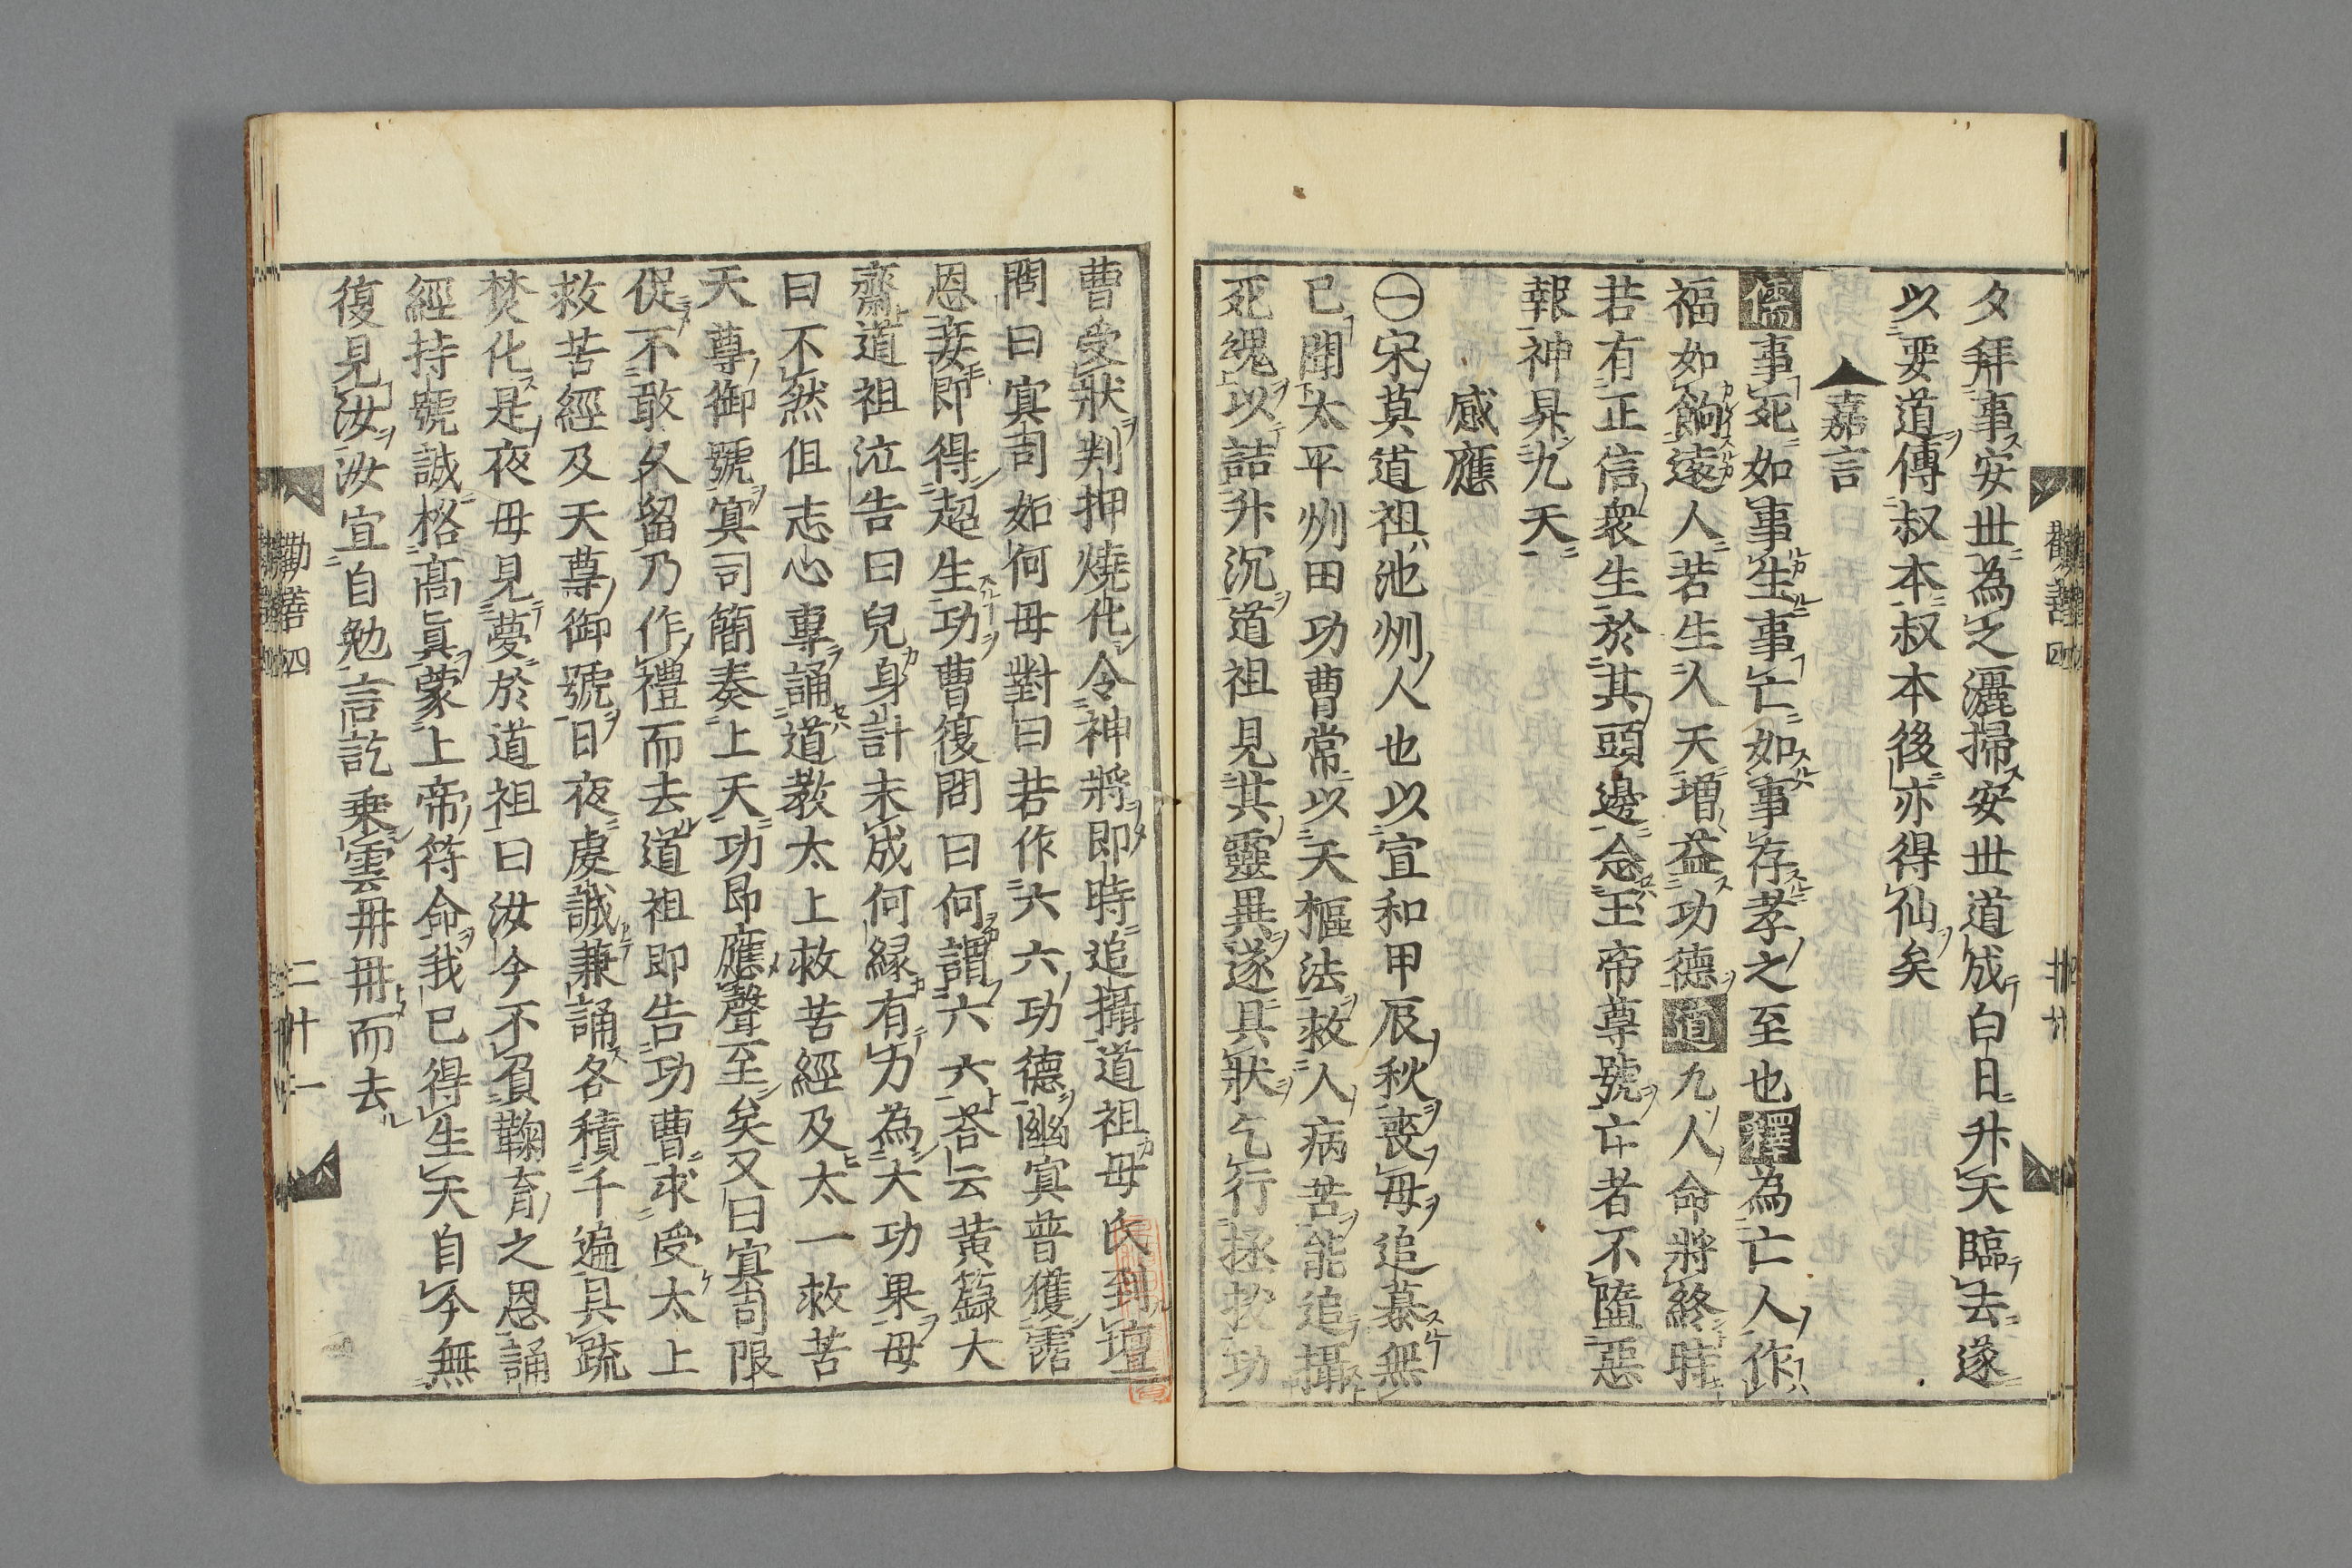 夕拜事安丗為之灑掃安丗道成白日升天臨去遂
以要道傳叔本叔本後亦得仙矣
嘉言
儒事死如事生事亡如事存孝之至也釋為亡人作
福如餉遠人若生人天増益功德道九人命將終時
若有正信衆生於其頭邊念玉帝尊號亡者不墮惡
報神昇九天
感應
㊀宋莫道祖池州人也以宣和甲辰秋喪母追慕無
已聞太平州田功曹常以天樞法救人病苦能追攝
死魂以詰升沉道祖見其靈異遂具狀乞行拯救功
曹受狀判押燒化令神將即時追攝道祖母氏到壇
問曰冥司如何母對曰若作六六六功德幽冥普獲霑
恩妾即得超生功曹復問曰何謂六六荅云黄籙大
齋道祖泣告曰兒身計未成何緣有力為大功果母
曰不然但志心專誦道教太上救苦經及太一救苦
天尊御號冥司簡奏上天功即應聲至矣又曰冥司限
促不敢久留乃作禮而去道祖即告功曹求受太上
救苦經及天尊御號日夜虔誠兼誦各積千遍具疏
焚化是夜母見夢於道祖曰汝今不負鞠育之恩誦
經持號誠格高眞蒙上帝符命我已得生天自今無
復見汝汝宜自勉言訖乗雲冊冊而去
勸善四
二十一
勸善四